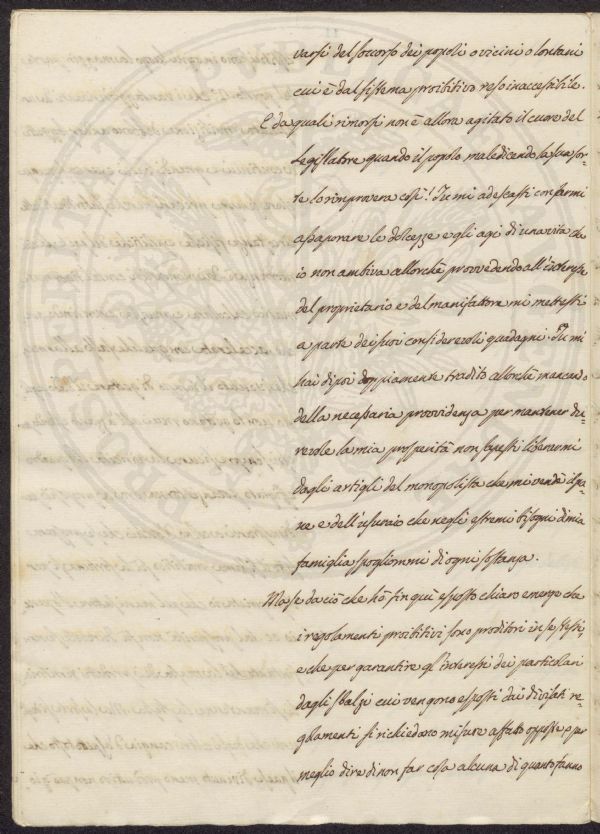 varsi del soccorso dei popoli o vicini o lontani
cui è dal sistema proibitivo reso inaccessibile.
E da quali rimorsi non è allora agitato il cuore del
Legislatore quando il popolo maledicendo la sua sor-
te lo rimprovera così! Tu mi adescasti con farmi
assaporare le dolcezze e gli agi di una vita che
io non ambiva allorchè provvedendo all'interesse
del proprietario e del manifattore mi mettesti
a parte dei suoi considerevoli guadagni. Tu mi
hai di poi doppiamente tradito allorchè mancando
della necessaria provvidenza per mantener du-
revole la mia prosperità non sapesti liberarmi
dagli artigli del monopolista che mi vendè il pa-
ne e dell'usuraio che negli estremi bisogni di mia
famiglia spogliommi di ogni sostanza.
Ma se da ciò che hò fin quì esposto chiaro emerge che
i regolamenti proibitivi sono proditori in se stessi,
e che per garantire gl'interessi dei particolari
dagli sbalzi cui vengono esposti dai divisati re-
golamenti si richiedono misure affatto opposte o per
meglio dire di non far cosa alcuna di quanto fanno